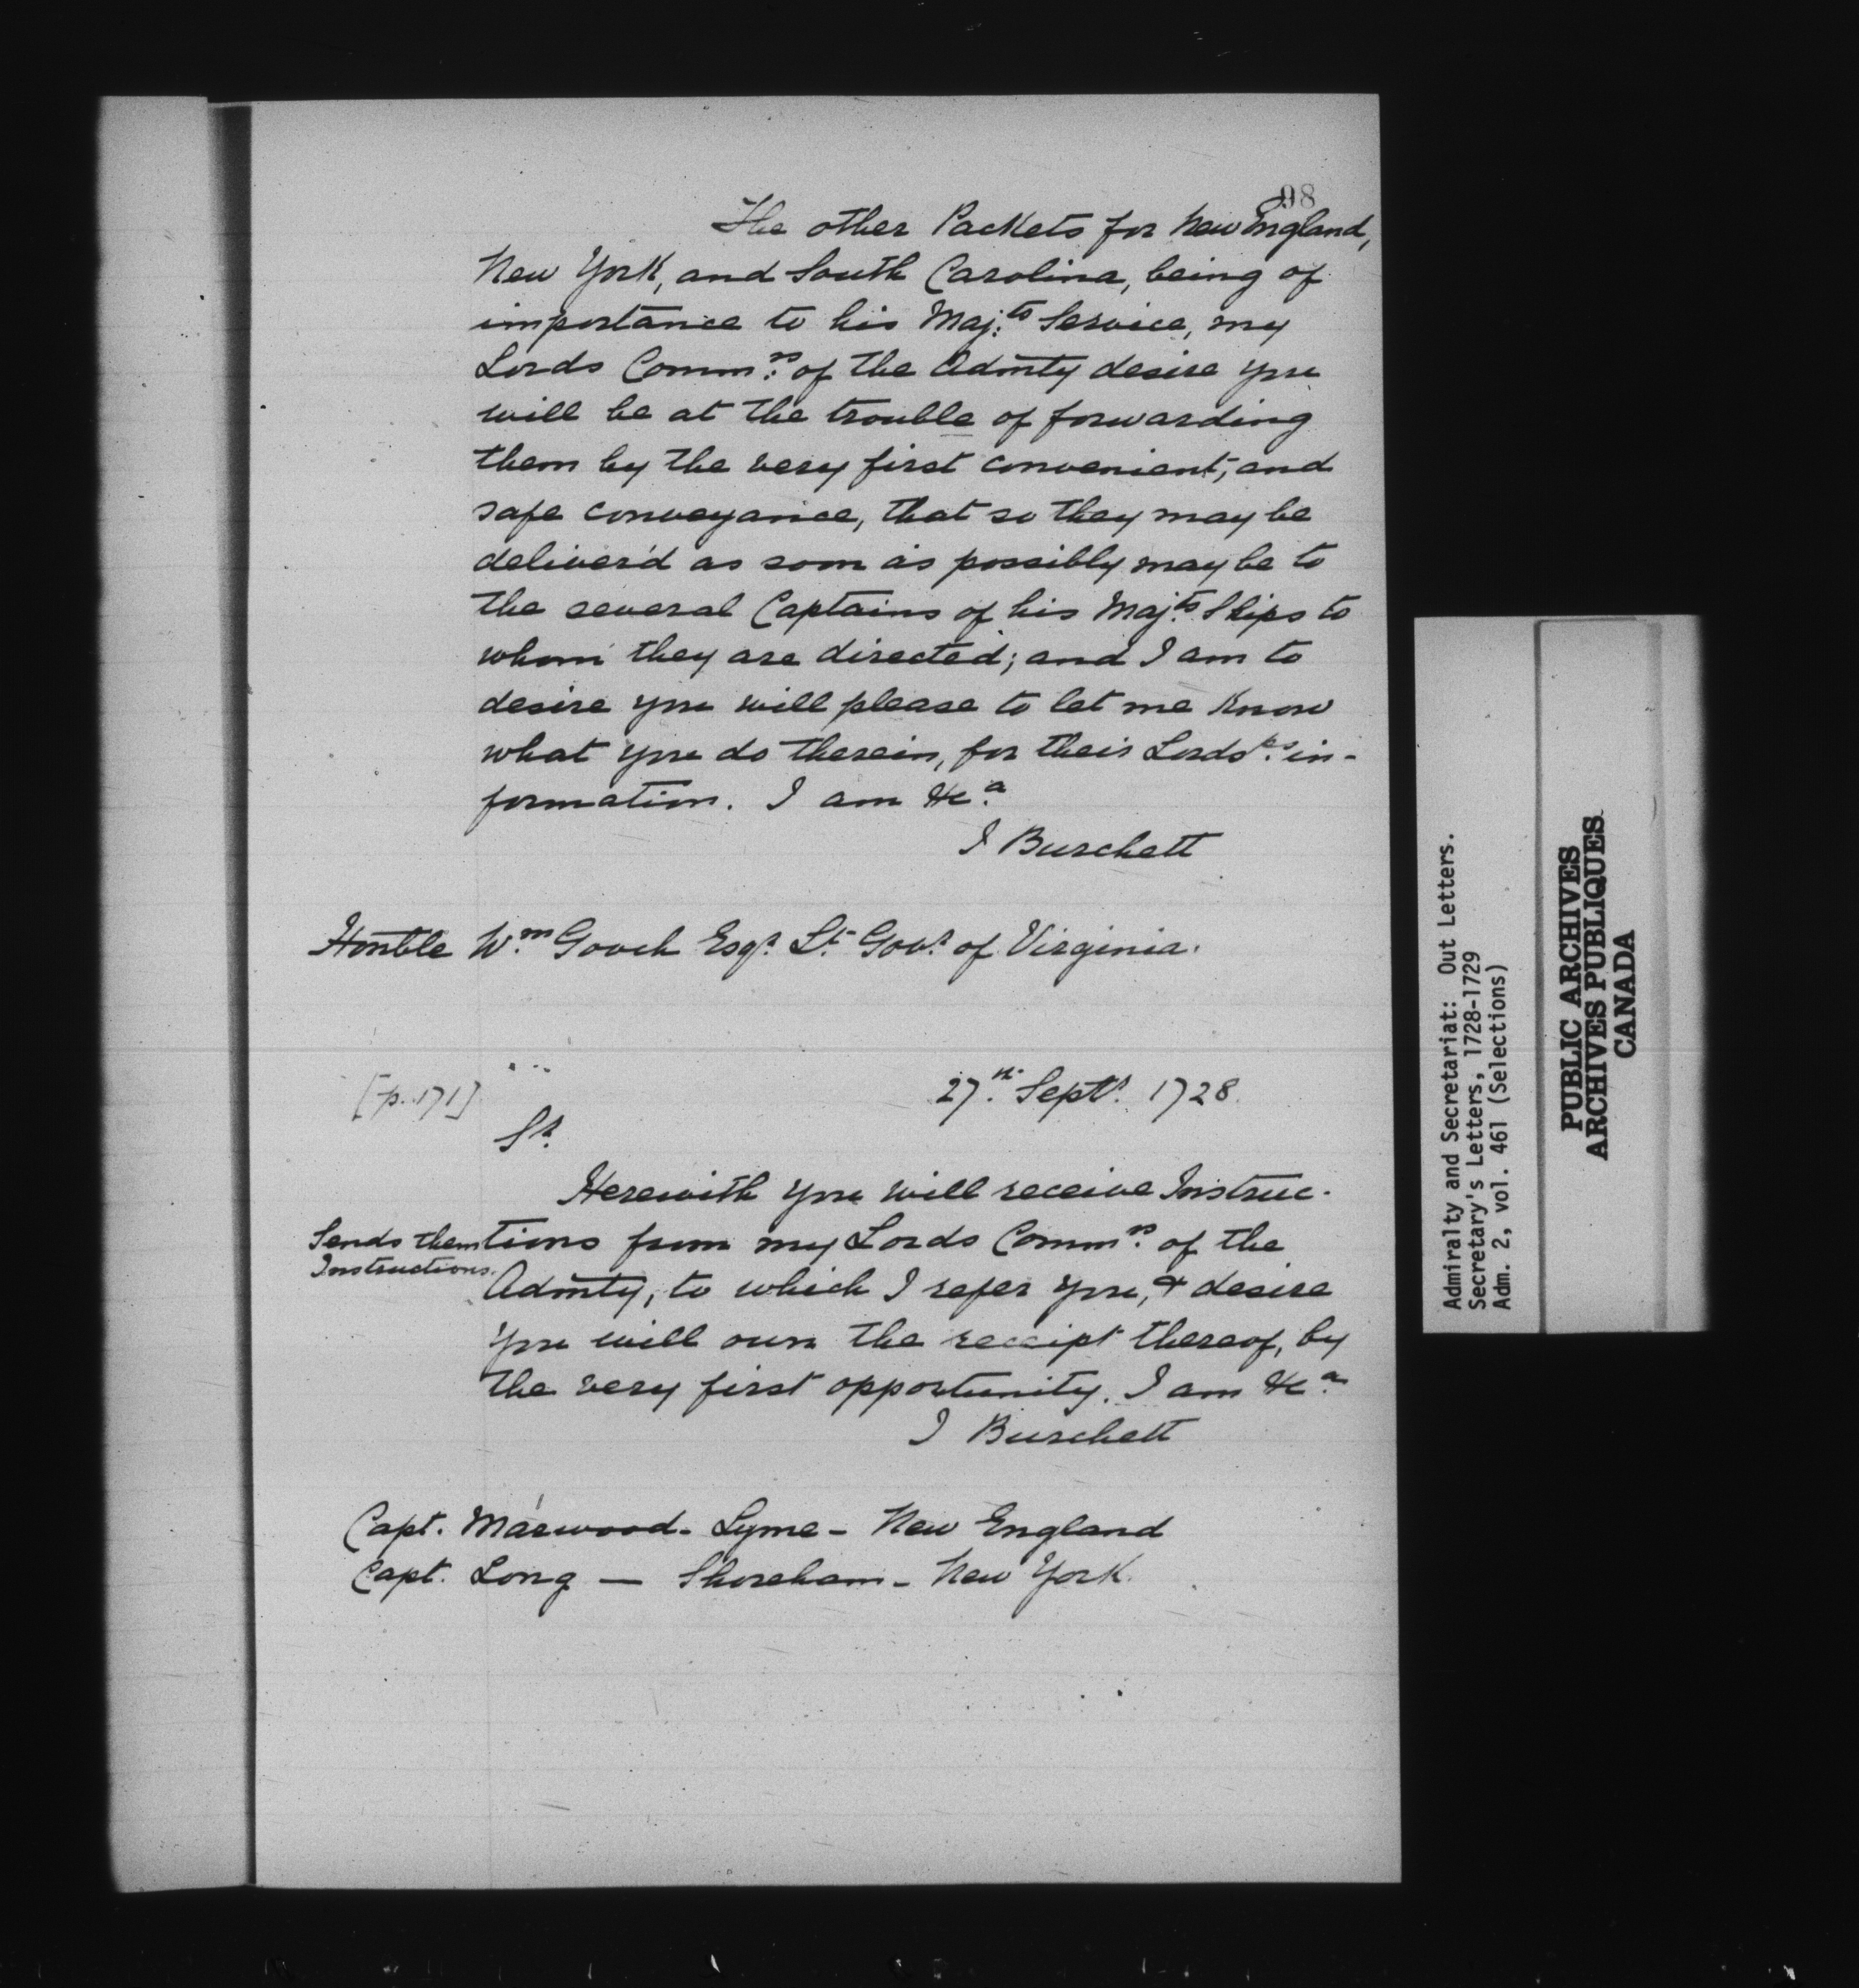 98
The other Packets for New England,
New York, and South Carolina, being of
importance to his Maj:ts Service, my
Lords Comm:rs of the Admty desire you
will be at the trouble of forwarding
them by the very first convenient, and
safe conveyance, that so they may be
deliver'd as soon as possibly may be to
the several Captains of his Maj:ts Ships to
whom they are directed; and I am to
desire you will please to let me know
what you do therein, for their Lordsps in-
formation. I am &c.a
J Burchett
Honble Wm. Gooch Esqr. Lt. Govr. of Virginia.
...
[p. 171]
27th. Septr. 1728.
Sr.
Herewith you will receive Instruc-
Sends them
Instructions.
tions from my Lords Commrs. of the
Admty, to which I refer you, & desire
you will own the receipt thereof, by
the very first opportunity. I am &c.a
J Burchett
Capt. Marwood - Lyme - New England
Capt. Long — Shoreham - New York.
Admiralty and Secretariat: Out Letters.
Secretary's Letters, 1728-1729
Adm. 2, vol. 461 (Selections)
PUBLIC ARCHIVES
ARCHIVES PUBLIQUES
CANADA